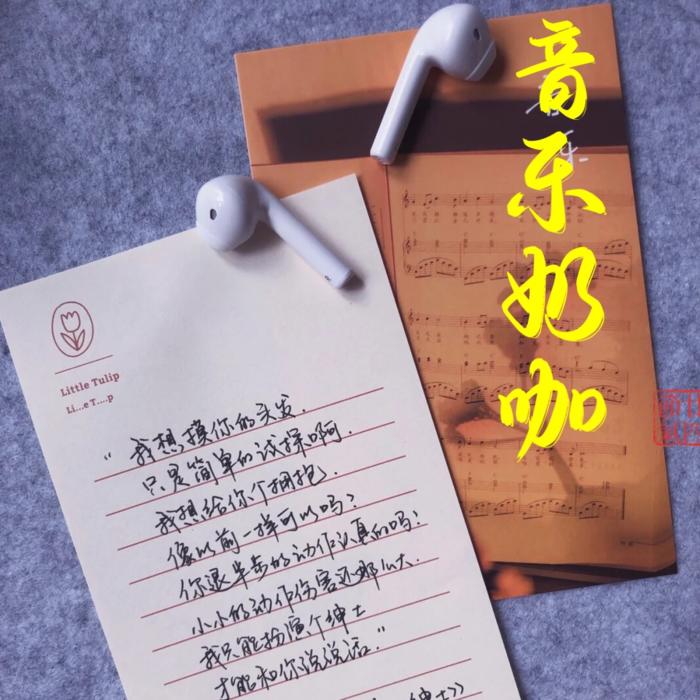 音乐奶咖
Little Tulip
Li...e T....p
“我想摸你的头发.
只是简单的试探啊.
我想给你个拥抱.
像以前一样可以吗?
你退半步的动作认真的吗?
小小的动作伤害还那么大.
我只能扮演个绅士
才能和你说说话.”
绅士》